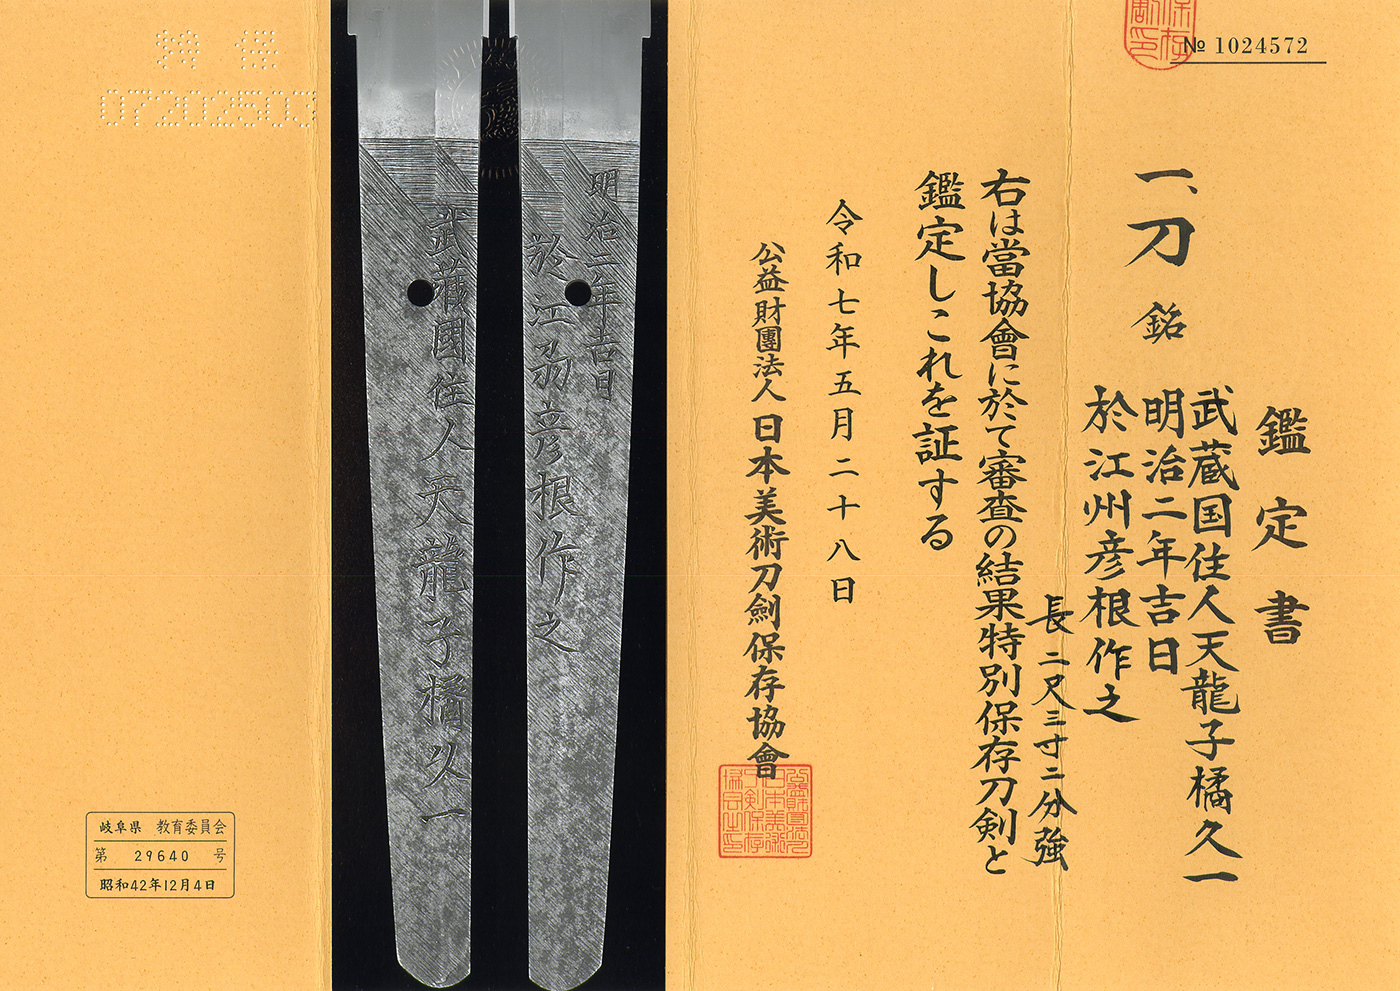 № 1024572
鑑定書
一、刀 銘
武蔵国住人天龍子橘久一
明治二年吉日
於江州彦根作之
長二尺三寸二分強
右は當協會に於て審査の結果特別保存刀剣と
鑑定しこれを証する
令和七年五月二十八日
公益財團法人日本美術刀劍保存協會
明治二年吉日
於江刕彦根作之
武蔵國住人天龍子橘久一
特保
07202503
岐阜県 教育委員会
第 29640 号
昭和42年12月4日